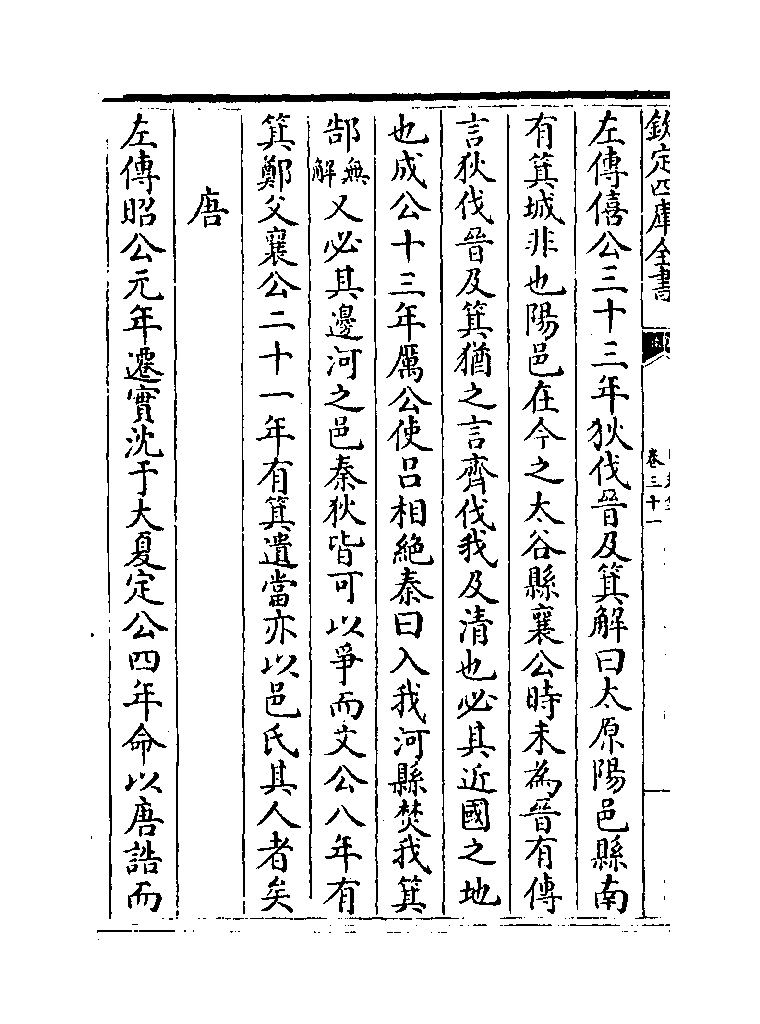 欽定四庫全書
卷三十一
左傳僖公三十三年狄伐晉及箕解曰太原陽邑縣南
有箕城非也陽邑在今之太谷縣襄公時未為晉有傳
言狄伐晉及箕猶之言齊伐我及清也必其近國之地
也成公十三年厲公使呂相絶秦曰入我河縣焚我箕
郜無解又必其邊河之邑秦狄皆可以爭而文公八年有
箕鄭父襄公二十一年有箕遺當亦以邑氏其人者矣
唐
左傳昭公元年遷實沈于大夏定公四年命以唐誥而